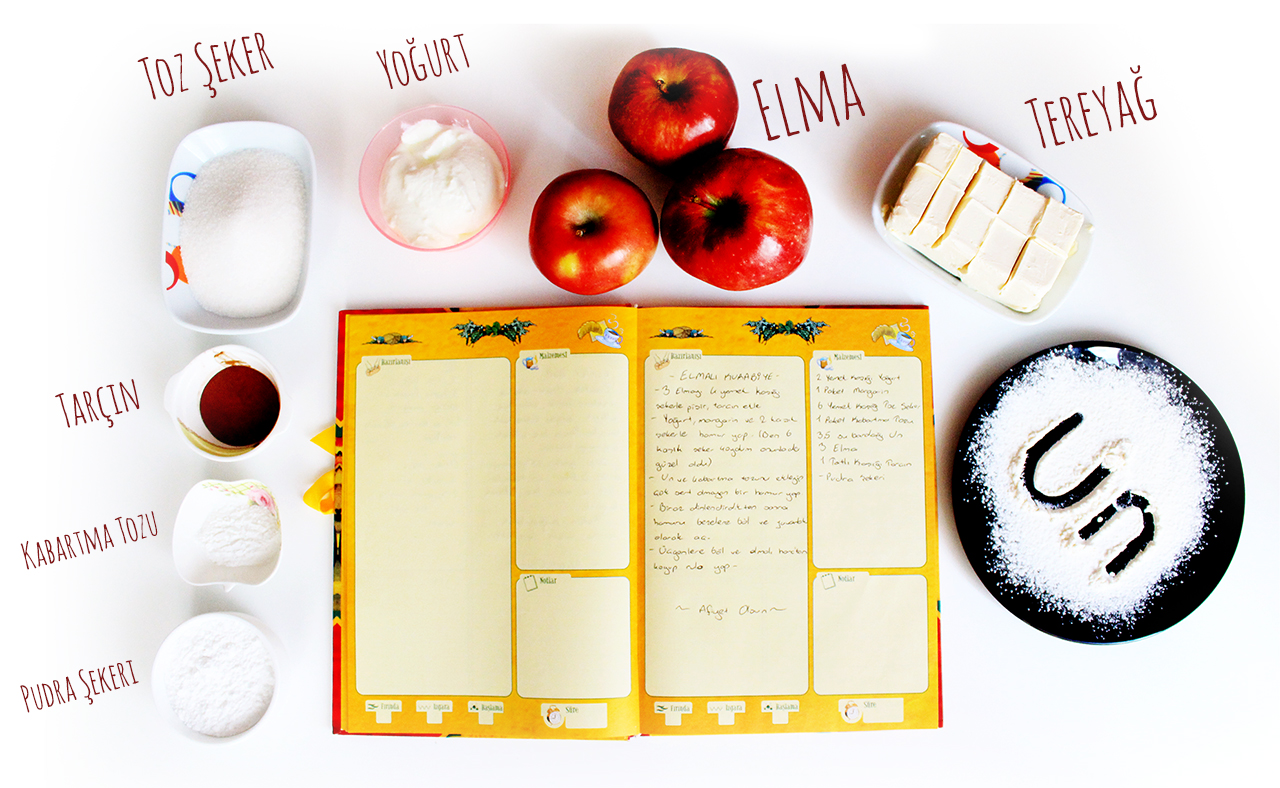 Toz Şeker
Yoğurt
Elma
Tereyağ
Tarçın
Kabartma Tozu
Pudra Şekeri
Un
Hazırlanışı
Malzemesi
Notlar
Fırında
Izgara
Haşlama
Süre
Hazırlanışı
- ELMALI KURABİYE -
- 3 Elmayı 4 yemek kaşığı
şekerle pişir, tarçın ekle
- Yoğurt, margarin ve 2 kaşık
şekerle hamur yap. (Ben 6
kaşık şeker koydum onunla da
güzel oldu)
- Un ve kabartma tozunu ekleyip
çok sert olmayan bir hamur yap
- Biraz dinlendirdikten sonra
hamuru bezelere böl ve yuvarlak
olarak aç.
- Üçgenlere böl ve elmalı harçtan
koyup rulo yap -
~ Afiyet Olsun ~
Malzemesi
2 Yemek Kaşığı Yoğurt
1 Paket Margarin
6 Yemek Kaşığı Toz Şeker
1 Paket Kabartma Tozu
3.5 su bardağı Un
3 Elma
1 Tatlı Kaşığı Tarçın
- Pudra Şekeri
Notlar
Fırında
Izgara
Haşlama
Süre